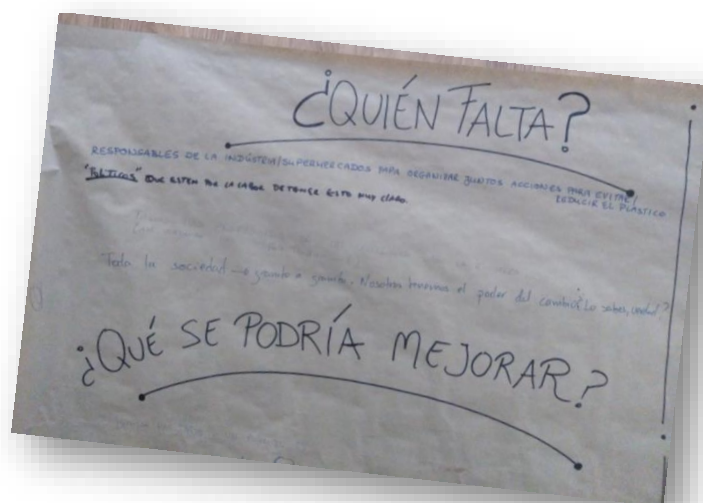 ¿QUIÉN FALTA?
RESPONSABLES DE LA INDÚSTRIA/SUPERMERCADOS PARA ORGANIZAR JUNTOS ACCIONES PARA EVITAR/
REDUCIR EL PLÁSTICO
"POLÍTICOS" QUE ESTÉN POR LA LABOR DE TENER ESTO MUY CLARO.
Toda la sociedad → granito a granito. Nosotros tenemos el poder del cambio ¿Lo sabes, verdad?
¿QUÉ SE PODRÍA MEJORAR?